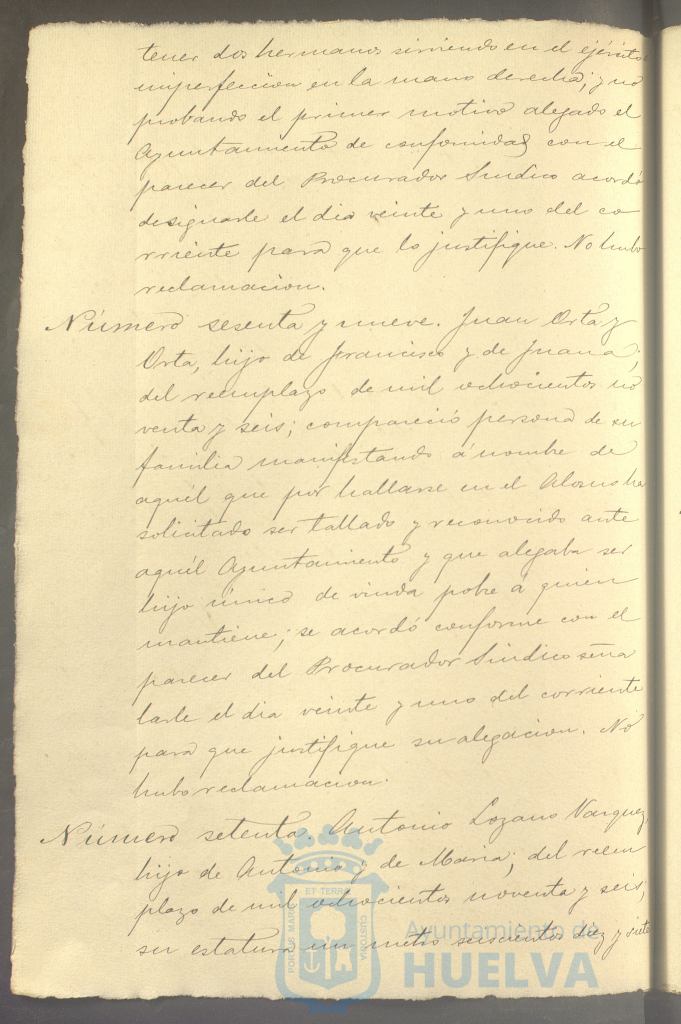 tener dos hermanos sirviendo en el ejército
imperfeccion en la mano derecha; y no
probando el primer motivo alegado el
Ayuntamiento de conformidad con el
parecer del Procurador Sindico acordó
designarle el dia veinte y uno del co
rriente para que lo justifique. No hubo
reclamacion.
Número sesenta y nueve. Juan Orta y
Orta, hijo de Francisco y de Juana;
del reemplazo de mil ochocientos no
venta y seis; compareció persona de su
familia manifestando á nombre de
aquél que por hallarse en el Alosno ha
solicitado ser tallado y reconocido ante
aquél Ayuntamiento y que alegaba ser
hijo único de viuda pobre á quien
mantiene; se acordó conforme con el
parecer del Procurador Sindico seña
larle el dia veinte y uno del corriente
para que justifique su alegacion. No
hubo reclamacion.
Número setenta. Antonio Lozano Vazquez,
hijo de Antonio y de Maria; del reem
plazo de mil ochocientos noventa y seis;
su estatura un metro seiscientos diez y siete
ET TERRÆ
PORTUS MARIS
CUSTODIA
Ayuntamiento de
HUELVA